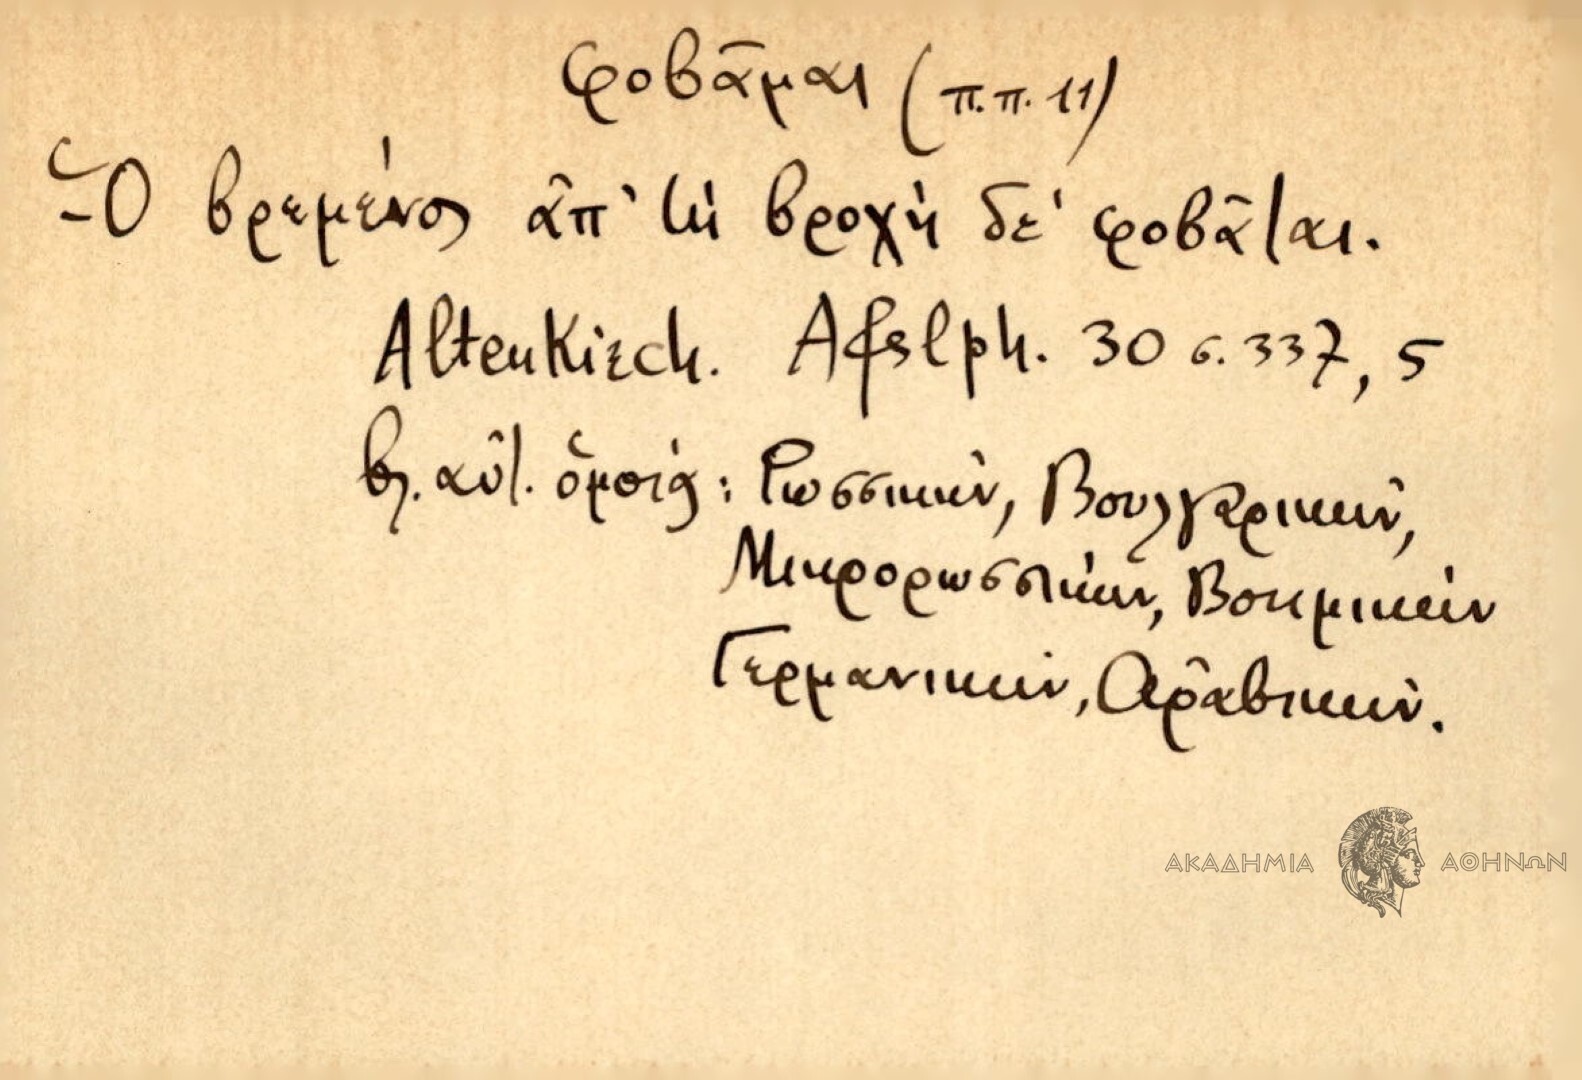 φοβᾶμαι (π.π. 11)
- Ὁ βρεμένος ἀπ' τὴ βροχὴ δὲ φοβᾶται.
Altenkirch. Afslph. 30 σ. 337, 5
βλ. αὐτ. ὅμοια: Ρωσσικήν, Βουλγαρικήν,
Μικρορωσσικήν, Βοημικήν
Γερμανικήν, Ἀραβικήν.
ΑΚΑΔΗΜΙΑ ΑΘΗΝΩΝ